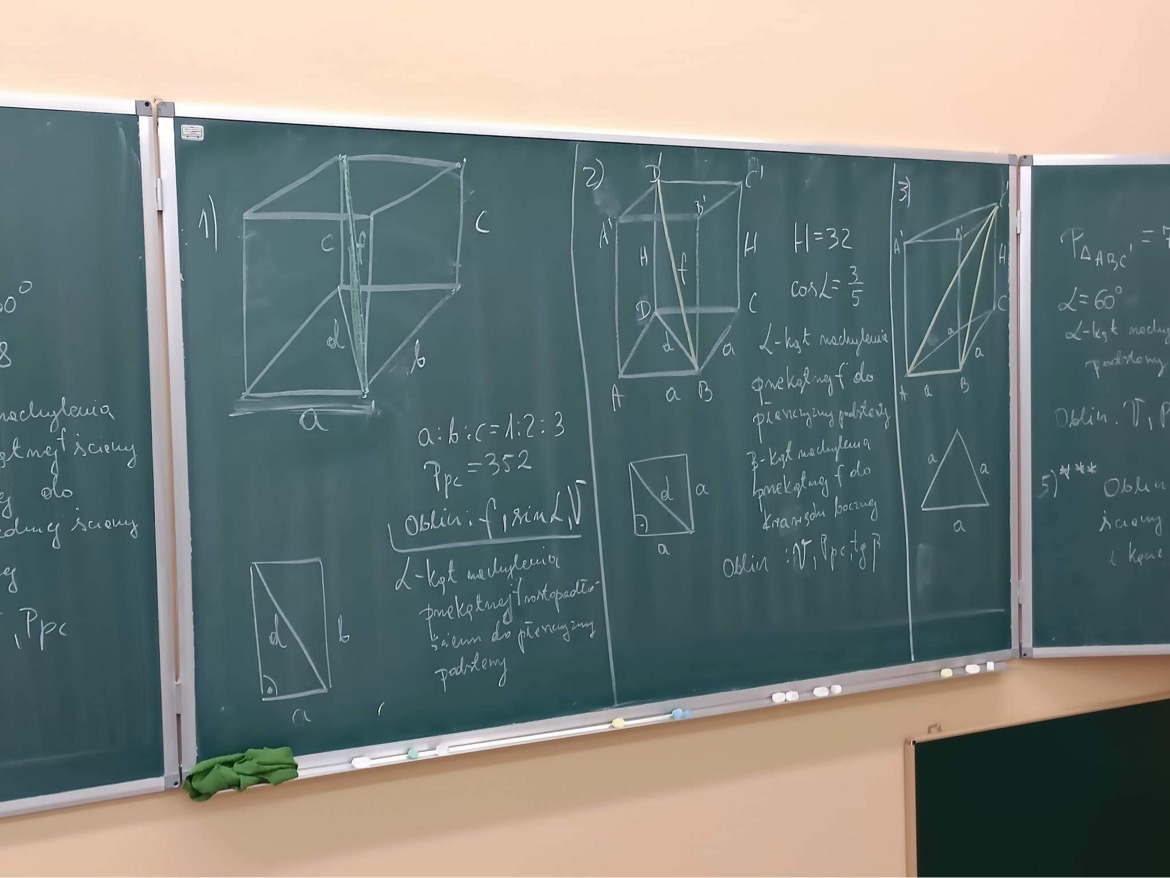 0°
8
nachylenia
ściany
do
ściany
, Ppc
1)
C
c
f
d
b
a
a:b:c=1:2:3
Ppc=352
Oblicz: f, sin α, V
α-kąt nachylenia
przekątnej prostopadło-
ścianu do płaszczyzny
podstawy
d
b
a
2)
D'
C'
A'
B'
H
f
H
D
C
d
a
A
a
B
H=32
cos α=3/5
α-kąt nachylenia
przekątnej f do
płaszczyzny podstawy
β-kąt nachylenia
przekątnej f do
krawędzi bocznej
Oblicz: V, Ppc, tg β
d
a
a
3)
C'
A'
B'
H
C
a
a
A
a
B
a
a
a
PΔABC' =
α=60°
α-kąt
podstawy
Oblicz. V, P
5)***
Oblicz
ściany
i